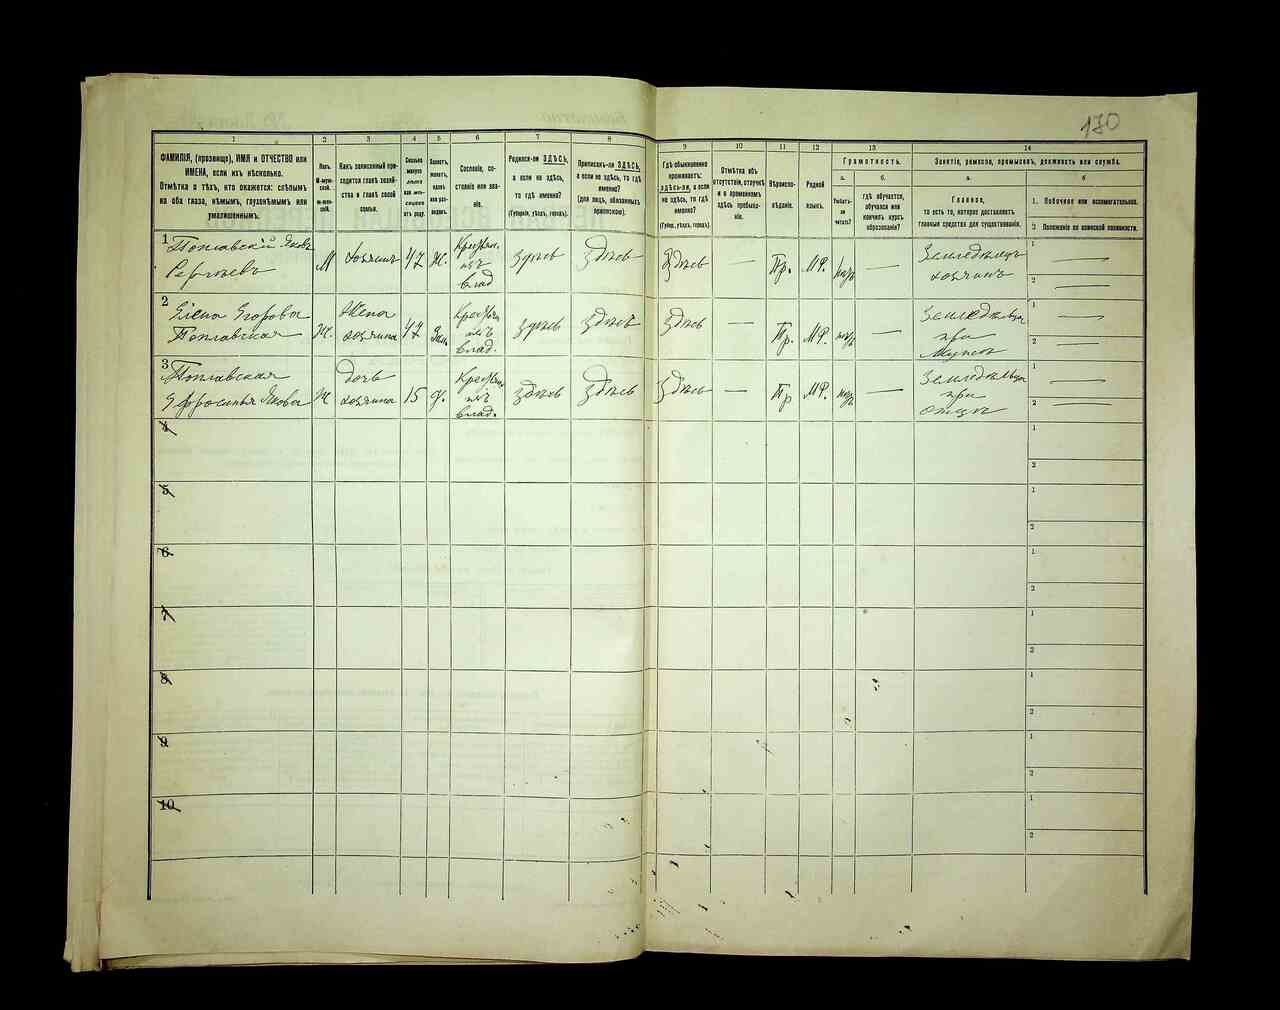 170
1 2 3 4 5 6 7 8 9 10 11 12 13 14
ФАМИЛІЯ, (прозвище), ИМЯ и ОТЧЕСТВО или
ИМЕНА, если ихъ нѣсколько.
Отмѣтка о тѣхъ, кто окажется: слѣпымъ
на оба глаза, нѣмымъ, глухонѣмымъ или
умалишеннымъ.
Полъ.
М-муж-
ской.
Ж-жен-
скій.
Какъ записанный при-
ходится главѣ хозяй-
ства и главѣ своей
семьи.
Сколько
минуло
лѣтъ
или мѣ-
сяцевъ
отъ роду.
Холостъ,
женатъ,
вдовъ
или раз-
веденъ.
Сословіе, со-
стояніе или зва-
ніе.
Родился-ли ЗДѢСЬ,
а если не здѣсь,
то гдѣ именно?
(Губернія, уѣздъ, городъ).
Приписанъ-ли ЗДѢСЬ,
а если не здѣсь, то гдѣ
именно?
(Для лицъ, обязанныхъ
припискою).
Гдѣ обыкновенно
проживаетъ:
здѣсь-ли, а если
не здѣсь, то гдѣ
именно?
(Губер., уѣздъ, городъ).
Отмѣтка объ
отсутствіи, отлучкѣ
и о временномъ
здѣсь пребыва-
ніи.
Вѣроиспо-
вѣданіе.
Родной
языкъ.
Грамотность.
а. б.
Умѣетъ-
ли
читать?
гдѣ обучается,
обучался или
кончилъ курсъ
образованія?
Занятіе, ремесло, промыселъ, должность или служба.
а. б
Главное,
то есть то, которое доставляетъ
главныя средства для существованія.
1. Побочное или вспомогательное.
2. Положеніе по воинской повинности.
1 Поплавскій Яковъ
Сергѣевъ
М хозяинъ 47 ж. Крестьян. изъ влад здѣсь здѣсь здѣсь — Пр. МР. — Земледѣлецъ хозяинъ
2 Елена Егорова
Поплавская
Ж. Жена хозяина 47 Зам. Крестьян. изъ влад. здѣсь здѣсь здѣсь — Пр. МР. — Земледѣлица при мужѣ
3 Поплавская
Эфросинья Якова
Ж Дочь хозяина 15 Крестьян. изъ влад. здѣсь здѣсь здѣсь — Пр МР. — Земледѣлица при отцѣ
4
5
6
7
8
9
10